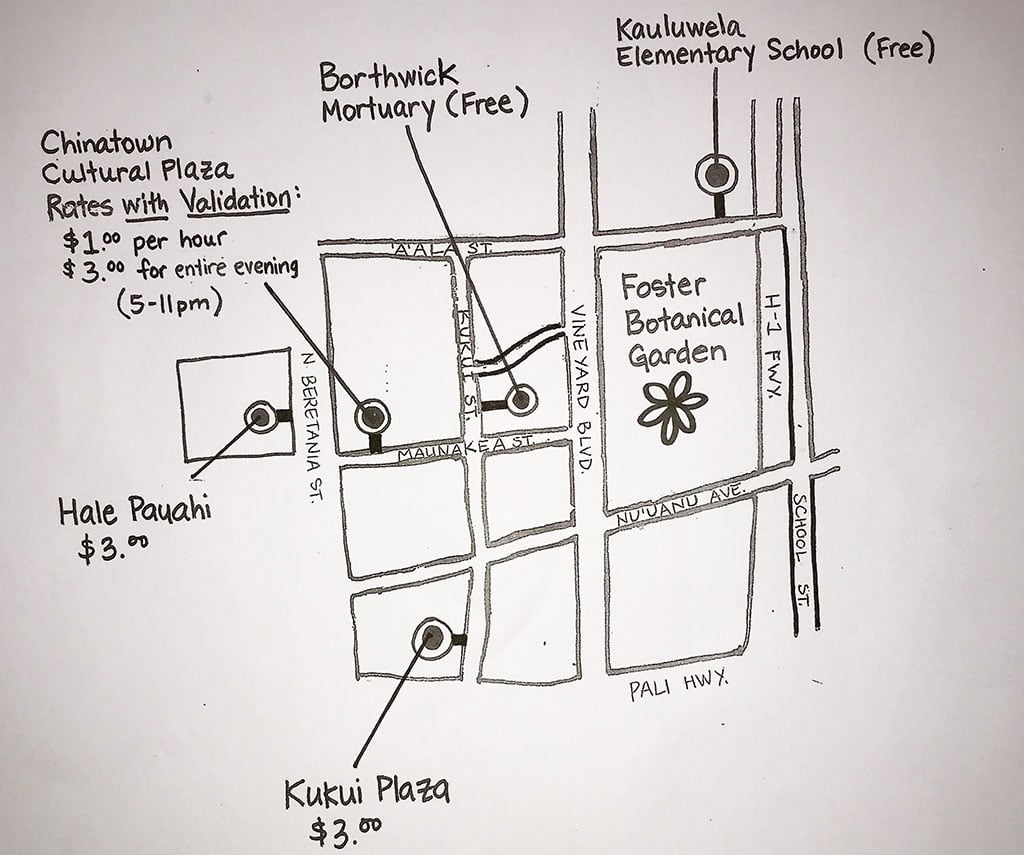 Kauluwela
Elementary School (Free)
Borthwick
Mortuary (Free)
Chinatown
Cultural Plaza
Rates with Validation:
$1.00 per hour
$3.00 for entire evening
(5-11pm)
'A'ALA ST.
KUKUI ST.
VINEYARD BLVD.
Foster
Botanical
Garden
H-1 FWY.
N BERETANIA ST.
MAUNAKEA ST.
NU'UANU AVE.
SCHOOL ST.
Hale Pauahi
$3.00
PALI HWY.
Kukui Plaza
$3.00